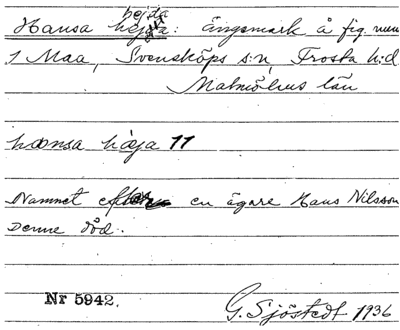 hejda
Hansa hejda: ängsmark å fig. num
1 Maa, Svensköps s:n, Frosta h:d
Malmöhus län
hansa hàja 11
Namnet efter en ägare Hans Nilsson
Denne död.
Nr 5942.
G. Sjöstedt 1936